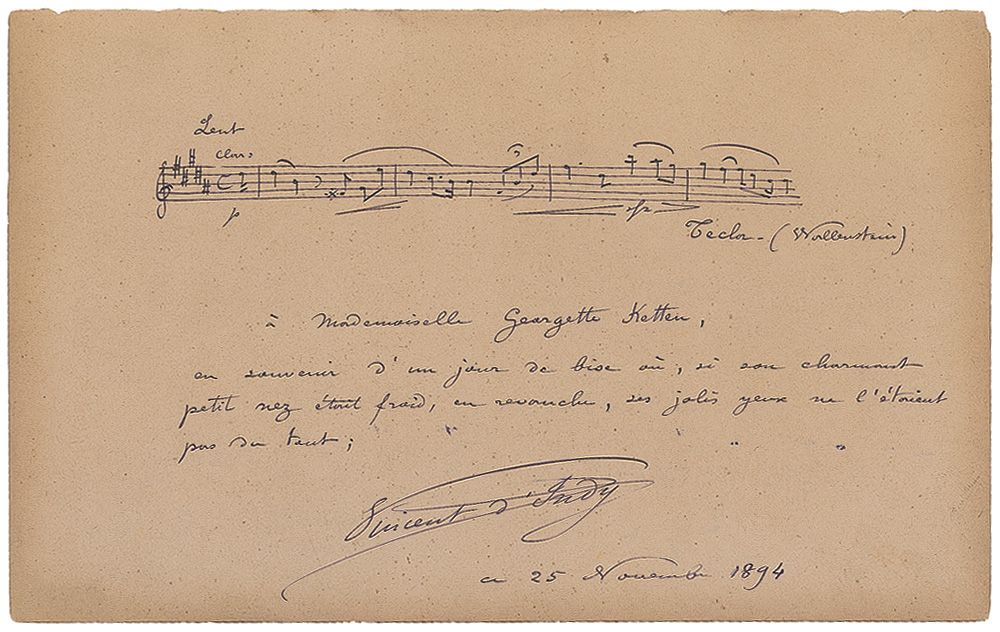 Lent
Clar.
p
sfp
Tecla - (Wallenstein)
à Mademoiselle Georgette Ketten,
en souvenir d'un jour de bise où, si son charmant
petit nez était froid, en revanche, ses jolis yeux ne l'étaient
pas du tout;
Vincent d'Indy
ce 25 Novembre 1894